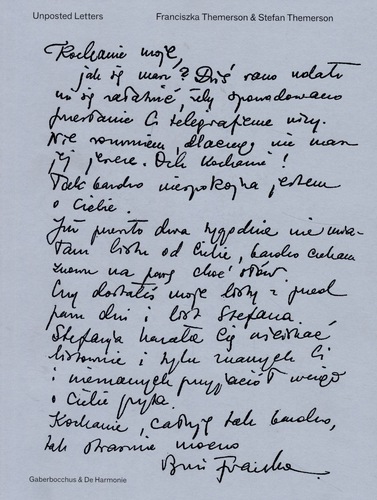 Unposted Letters
Franciszka Themerson & Stefan Themerson
Kochanie moje,
jak się masz? Dziś rano udało
mi się załatwić, żeby spowodowano
przesłanie Ci telegrafem wizy.
Nie rozumiem, dlaczego nie masz
jej jeszcze. Och kochanie!
Tak bardzo niespokojna jestem
o Ciebie.
Już przeszło dwa tygodnie nie mia-
łam listu od Ciebie, bardzo czekam
znowu na parę choć słów.
Czy dostałeś moje listy z przed
paru dni i list Stefana.
Stefania kazała Cię uściskać
listownie i tylu znanych Ci
i nieznanych przyjaciół wciąż
o Ciebie pyta.
Kochanie, całuję tak bardzo,
tak strasznie mocno
Franciszka.
Gaberbocchus & De Harmonie